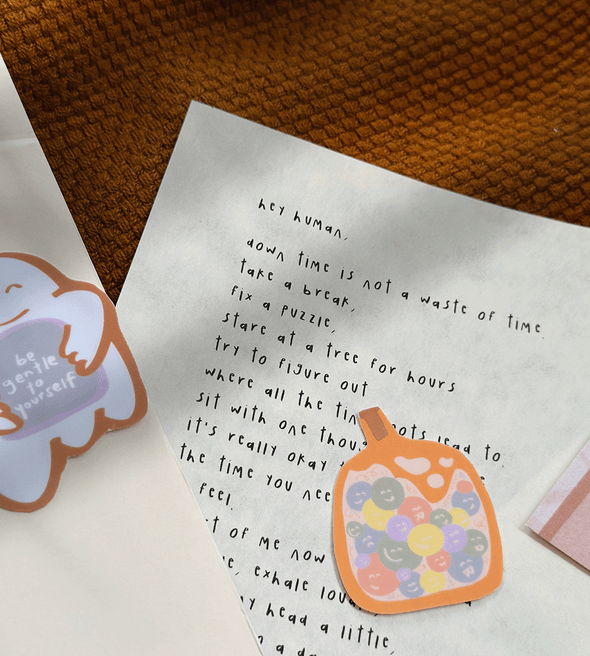 hey human,
down time is not a waste of time.
take a break,
fix a puzzle,
stare at a tree for hours
try to figure out
where all the lead to
sit with one
it's really okay
the time you
feel.
of me now
exhale
head a little,
be
gentle
to
yourself